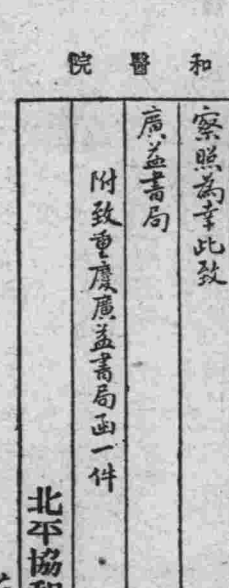 和醫院
察照為幸此致
廣益書局
附致重慶廣益書局函一件
北平協和